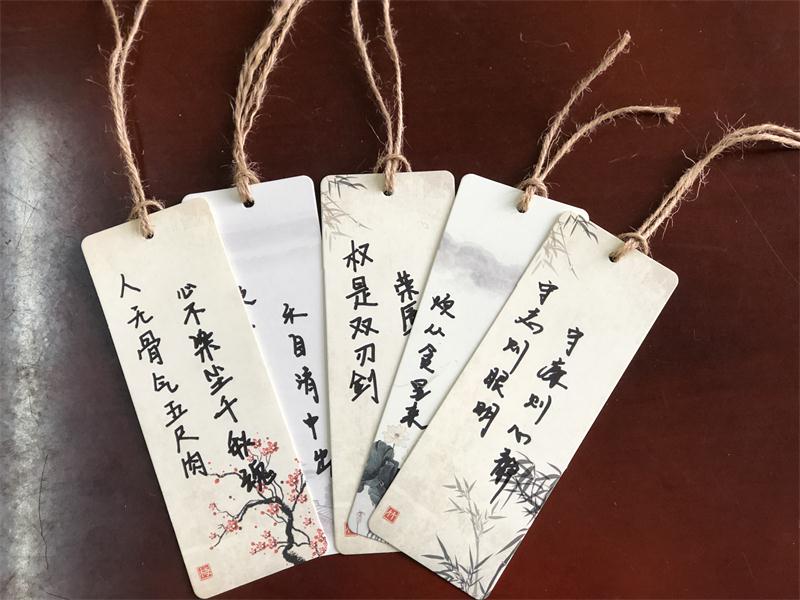 心不染尘千秋魂
人无骨气五尺肉
乐自清中出
荣
权是双刃剑
烦从贪里来
守廉则心静
守志则眼明